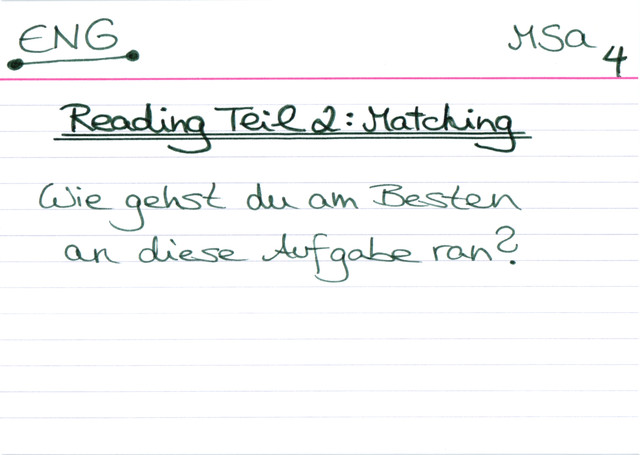 ENG
MSa 4
Reading Teil 2: Matching
Wie gehst du am Besten
an diese Aufgabe ran?